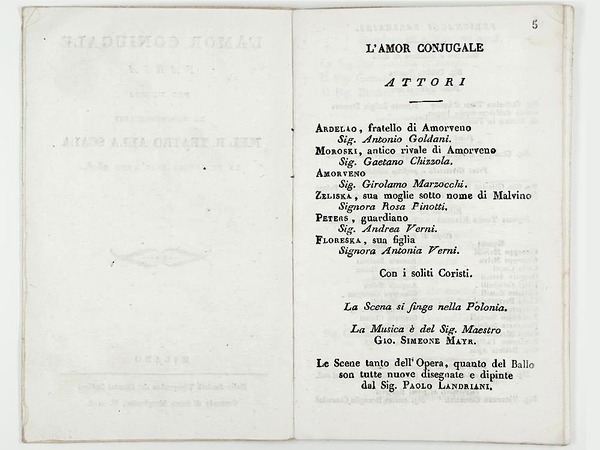 5
L'AMOR CONJUGALE
ATTORI
ARDELAO, fratello di Amorveno
Sig. Antonio Goldani.
MOROSKI, antico rivale di Amorveno
Sig. Gaetano Chizzola.
AMORVENO
Sig. Girolamo Marzocchi.
ZELISKA, sua moglie sotto nome di Malvino
Signora Rosa Pinotti.
PETERS, guardiano
Sig. Andrea Verni.
FLORESKA, sua figlia
Signora Antonia Verni.
Con i soliti Coristi.
La Scena si finge nella Polonia.
La Musica è del Sig. Maestro
GIO. SIMEONE MAYR.
Le Scene tanto dell'Opera, quanto del Ballo
son tutte nuove disegnate e dipinte
dal Sig. PAOLO LANDRIANI.